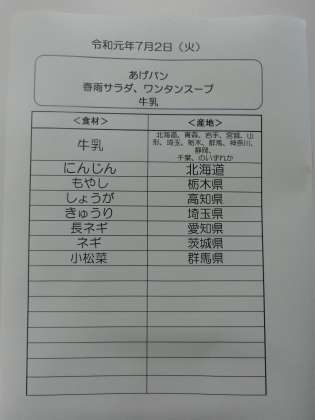 令和元年7月2日（火）
あげパン
春雨サラダ、ワンタンスープ
牛乳
＜食材＞ ＜産地＞
牛乳 北海道、青森、岩手、宮城、山
形、埼玉、栃木、群馬、神奈川、
静岡、
千葉、のいずれか
にんじん 北海道
もやし 栃木県
しょうが 高知県
きゅうり 埼玉県
長ネギ 愛知県
ネギ 茨城県
小松菜 群馬県